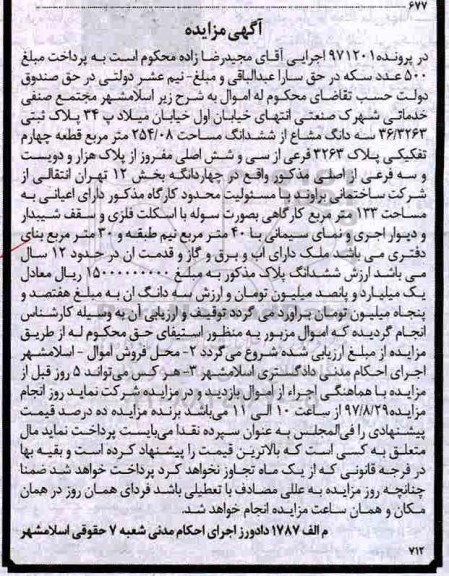 ۶۷۷
آگهی مزایده
در پرونده ۹۷۱۲۰۱ اجرایی آقای مجیدرضا زاده محکوم است به پرداخت مبلغ
۵۰۰ عدد سکه در حق سارا عبدالباقی و مبلغ- نیم عشر دولتی در حق صندوق
دولت حسب تقاضای محکوم له اموال به شرح زیر اسلامشهر مجتمع صنفی
خدماتی شهرک صنعتی انتهای خیابان اول خیابان میلاد پ ۳۴ پلاک ثبتی
۳۶/۳۲۶۳ سه دانگ مشاع از ششدانگ مساحت ۲۵۴/۰۸ متر مربع قطعه چهارم
تفکیکی پلاک ۳۲۶۳ فرعی از سی و شش اصلی مفروز از پلاک هزار و دویست
و سه فرعی از اصلی مذکور واقع در چهاردانگه بخش ۱۲ تهران انتقالی از
شرکت ساختمانی براوند با مسئولیت محدود کارگاه مذکور دارای اعیانی به
مساحت ۱۳۳ متر مربع کارگاهی بصورت سوله با اسکلت فلزی و سقف شیبدار
و دیوار اجری و نمای سیمانی با ۴۰ متر مربع نیم طبقه و ۳۰ متر مربع بنای
دفتری می باشد ملک دارای اب و برق و گاز و قدمت ان در حدود ۱۲ سال
می باشد ارزش ششدانگ پلاک مذکور به مبلغ ۱۵۰۰۰۰۰۰۰۰۰ ریال معادل
یک میلیارد و پانصد میلیون تومان و ارزش سه دانگ ان به مبلغ هفتصد و
پنجاه میلیون تومان براورد می گردد توقیف و ارزیابی آن به وسیله کارشناس
انجام گردیده که اموال مزبور به منظور استیفای حق محکوم له از طریق
مزایده از مبلغ ارزیابی شده شروع می‌گردد ۲- محل فروش اموال - اسلامشهر
اجرای احکام مدنی دادگستری اسلامشهر ۳- هر کس می‌تواند ۵ روز قبل از
مزایده با هماهنگی اجراء از اموال بازدید و در مزایده شرکت نماید روز انجام
مزایده ۹۷/۸/۲۹ از ساعت ۱۰ الی ۱۱ می‌باشد برنده مزایده ده درصد قیمت
پیشنهادی را فی‌المجلس به عنوان سپرده نقدا می‌بایست پرداخت نماید مال
متعلق به کسی است که بالاترین قیمت را پیشنهاد کرده است و بقیه بها
در فرجه قانونی که از یک ماه تجاوز نخواهد کرد پرداخت خواهد شد ضمنا
چنانچه روز مزایده به عللی مصادف با تعطیلی باشد فردای همان روز در همان
مکان و همان ساعت مزایده انجام خواهد شد.
م الف ۱۷۸۷ دادورز اجرای احکام مدنی شعبه ۷ حقوقی اسلامشهر
۷۱۲